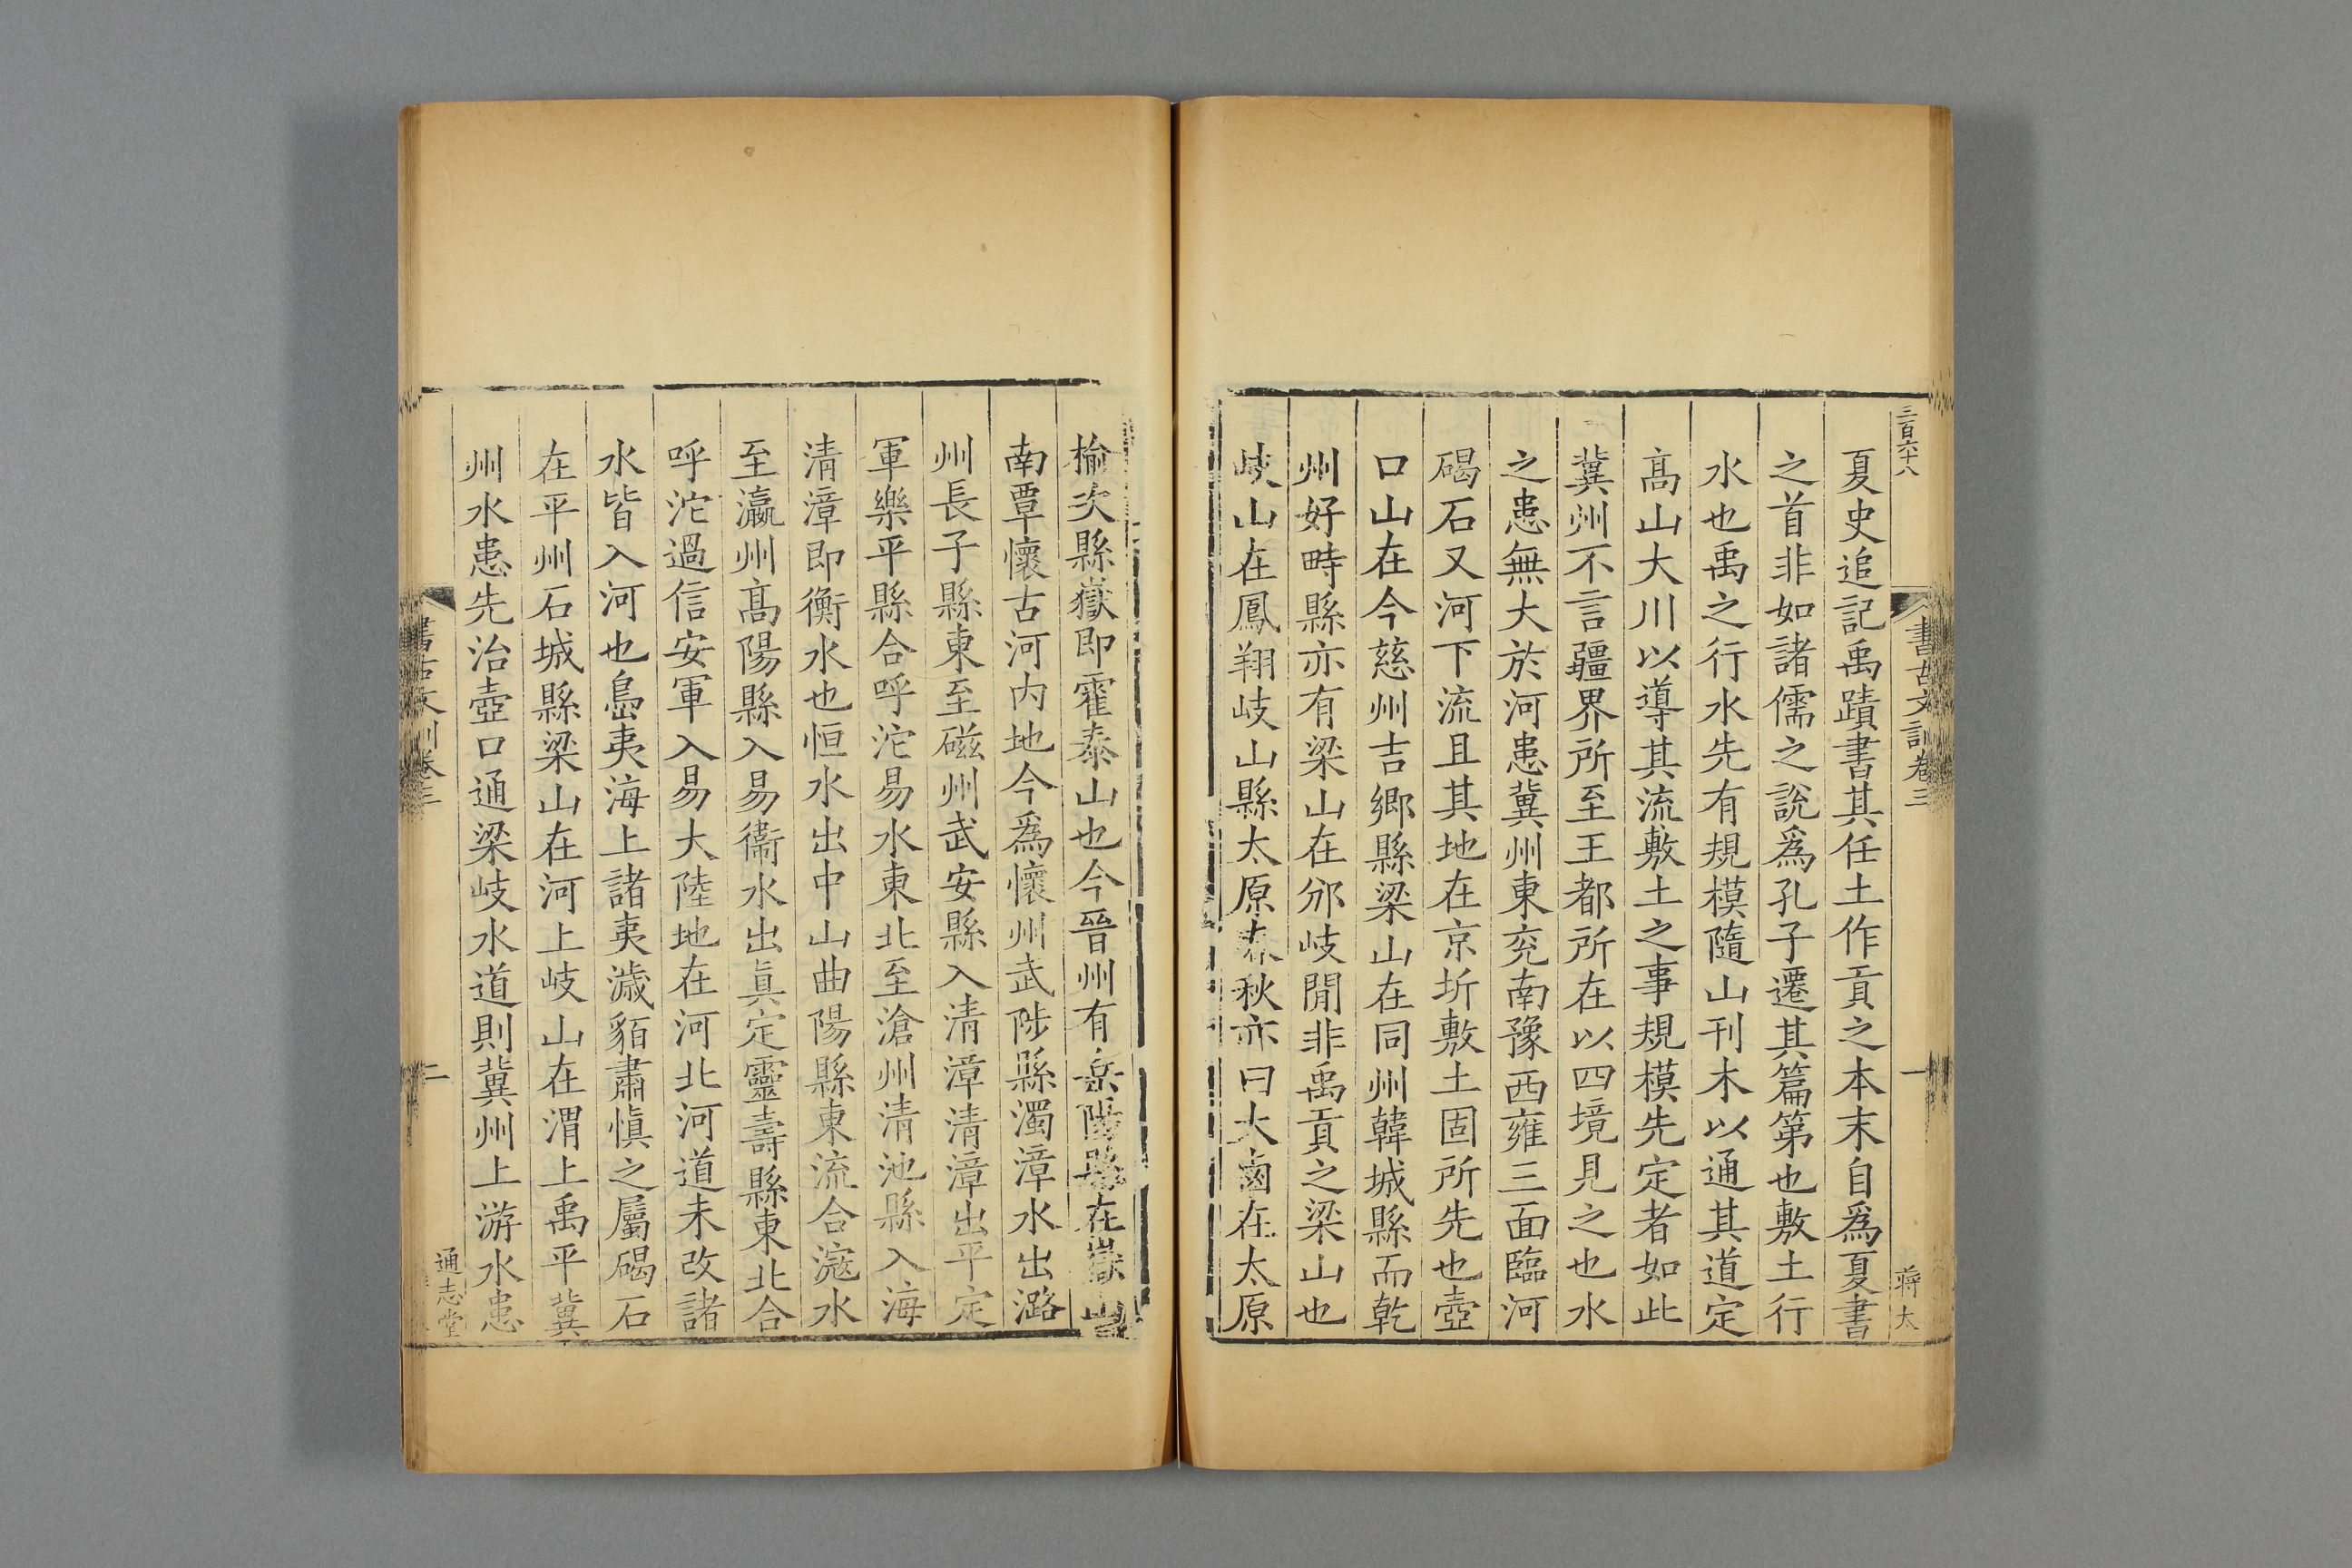 三百六十八
書古文訓卷三
一
蔣太
夏史追記禹蹟書其任土作貢之本末自爲夏書
之首非如諸儒之說爲孔子遷其篇第也敷土行
水也禹之行水先有規模隨山刊木以通其道定
高山大川以導其流敷土之事規模先定者如此
冀州不言疆界所至王都所在以四境見之也水
之患無大於河患冀州東兖南豫西雍三面臨河
碣石又河下流且其地在京圻敷土固所先也壺
口山在今慈州吉鄉縣梁山在同州韓城縣而乾
州好畤縣亦有梁山在邠岐閒非禹貢之梁山也
岐山在鳳翔岐山縣太原春秋亦曰大鹵在太原
榆次縣嶽即霍泰山也今晉州有岳陽縣在嶽山
南覃懷古河内地今爲懷州武陟縣濁漳水出潞
州長子縣東至磁州武安縣入清漳清漳出平定
軍樂平縣合呼沱易水東北至滄州清池縣入海
清漳即衡水也恒水出中山曲陽縣東流合滱水
至瀛州高陽縣入易衞水出眞定靈壽縣東北合
呼沱過信安軍入易大陸地在河北河道未改諸
水皆入河也島夷海上諸夷濊貊肅愼之屬碣石
在平州石城縣梁山在河上岐山在渭上禹平冀
州水患先治壺口通梁岐水道則冀州上游水患
書古文訓卷三
二
通志堂